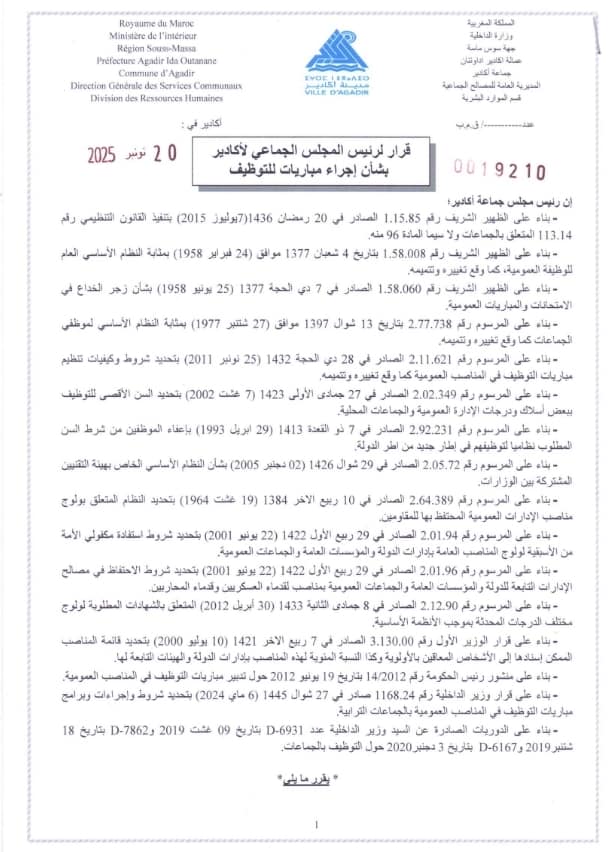 Royaume du Maroc
Ministère de l'intérieur
Région Souss-Massa
Préfecture Agadir Ida Outanane
Commune d'Agadir
Direction Générale des Services Communaux
Division des Ressources Humaines
المملكة المغربية
وزارة الداخلية
جهة سوس ماسة
عمالة اكادير اداوتنان
جماعة أكادير
المديرية العامة للمصالح الجماعية
قسم الموارد البشرية
مدينة أكادير
VILLE D'AGADIR
عدد-----------/ ق.م.ب
أكادير في :
20 نونبر 2025
0019210
قرار لرئيس المجلس الجماعي لأكادير
بشأن إجراء مباريات للتوظيف
إن رئيس مجلس جماعة أكادير؛
- بناء على الظهير الشريف رقم 1.15.85 الصادر في 20 رمضان 1436(7يوليوز 2015) بتنفيذ القانون التنظيمي رقم
113.14 المتعلق بالجماعات ولا سيما المادة 96 منه.
- بناء على الظهير الشريف رقم 1.58.008 بتاريخ 4 شعبان 1377 موافق (24 فبراير 1958) بمثابة النظام الأساسي العام
للوظيفة العمومية، كما وقع تغييره وتتميمه.
- بناء على الظهير الشريف رقم 1.58.060 الصادر في 7 دي الحجة 1377 (25 يونيو 1958) بشأن زجر الخداع في
الامتحانات والمباريات العمومية.
- بناء على المرسوم رقم 2.77.738 بتاريخ 13 شوال 1397 موافق (27 شتنبر 1977) بمثابة النظام الأساسي لموظفي
الجماعات كما وقع تغييره وتتميمه.
- بناء على المرسوم رقم 2.11.621 الصادر في 28 دي الحجة 1432 (25 نونبر 2011) بتحديد شروط وكيفيات تنظيم
مباريات التوظيف في المناصب العمومية كما وقع تغييره وتتميمه.
- بناء على المرسوم رقم 2.02.349 الصادر في 27 جمادى الأولى 1423 (7 غشت 2002) بتحديد السن الأقصى للتوظيف
ببعض أسلاك ودرجات الإدارة العمومية والجماعات المحلية.
- بناء على المرسوم رقم 2.92.231 الصادر في 7 ذو القعدة 1413 (29 ابريل 1993) بإعفاء الموظفين من شرط السن
المطلوب نظاميا لتوظيفهم في إطار جديد من اطر الدولة.
- بناء على المرسوم رقم 2.05.72 الصادر في 29 شوال 1426 (02 دجنبر 2005) بشأن النظام الأساسي الخاص بهيئة التقنيين
المشتركة بين الوزارات.
- بناء على المرسوم رقم 2.64.389 الصادر في 10 ربيع الاخر 1384 (19 غشت 1964) بتحديد النظام المتعلق بولوج
مناصب الإدارات العمومية المحتفظ بها للمقاومين.
- بناء على المرسوم رقم 2.01.94 الصادر في 29 ربيع الأول 1422 (22 يونيو 2001) بتحديد شروط استفادة مكفولي الأمة
من الأسبقية لولوج المناصب العامة بإدارات الدولة والمؤسسات العامة والجماعات العمومية.
- بناء على المرسوم رقم 2.01.96 الصادر في 29 ربيع الأول 1422 (22 يونيو 2001) بتحديد شروط الاحتفاظ في مصالح
الإدارات التابعة للدولة والمؤسسات العامة والجماعات العمومية بمناصب لقدماء العسكريين وقدماء المحاربين.
- بناء على المرسوم رقم 2.12.90 الصادر في 8 جمادى الثانية 1433 (30 أبريل 2012) المتعلق بالشهادات المطلوبة لولوج
مختلف الدرجات المحدثة بموجب الأنظمة الأساسية.
- بناء على قرار الوزير الأول رقم 3.130.00 الصادر في 7 ربيع الاخر 1421 (10 يوليو 2000) بتحديد قائمة المناصب
الممكن إسنادها إلى الأشخاص المعاقين بالأولوية وكذا النسبة المئوية لهذه المناصب بإدارات الدولة والهيئات التابعة لها.
- بناء على منشور رئيس الحكومة رقم 14/2012 بتاريخ 19 يونيو 2012 حول تدبير مباريات التوظيف في المناصب العمومية.
- بناء على قرار وزير الداخلية رقم 1168.24 صادر في 27 شوال 1445 (6 ماي 2024) بتحديد شروط وإجراءات وبرامج
مباريات التوظيف في المناصب العمومية بالجماعات الترابية.
- بناء على الدوريات الصادرة عن السيد وزير الداخلية عدد D-6931 بتاريخ 09 غشت 2019 وD-7862 بتاريخ 18
شتنبر2019 وD-6167 بتاريخ 3 دجنبر2020 حول التوظيف بالجماعات.
* يقرر ما يلي*
1